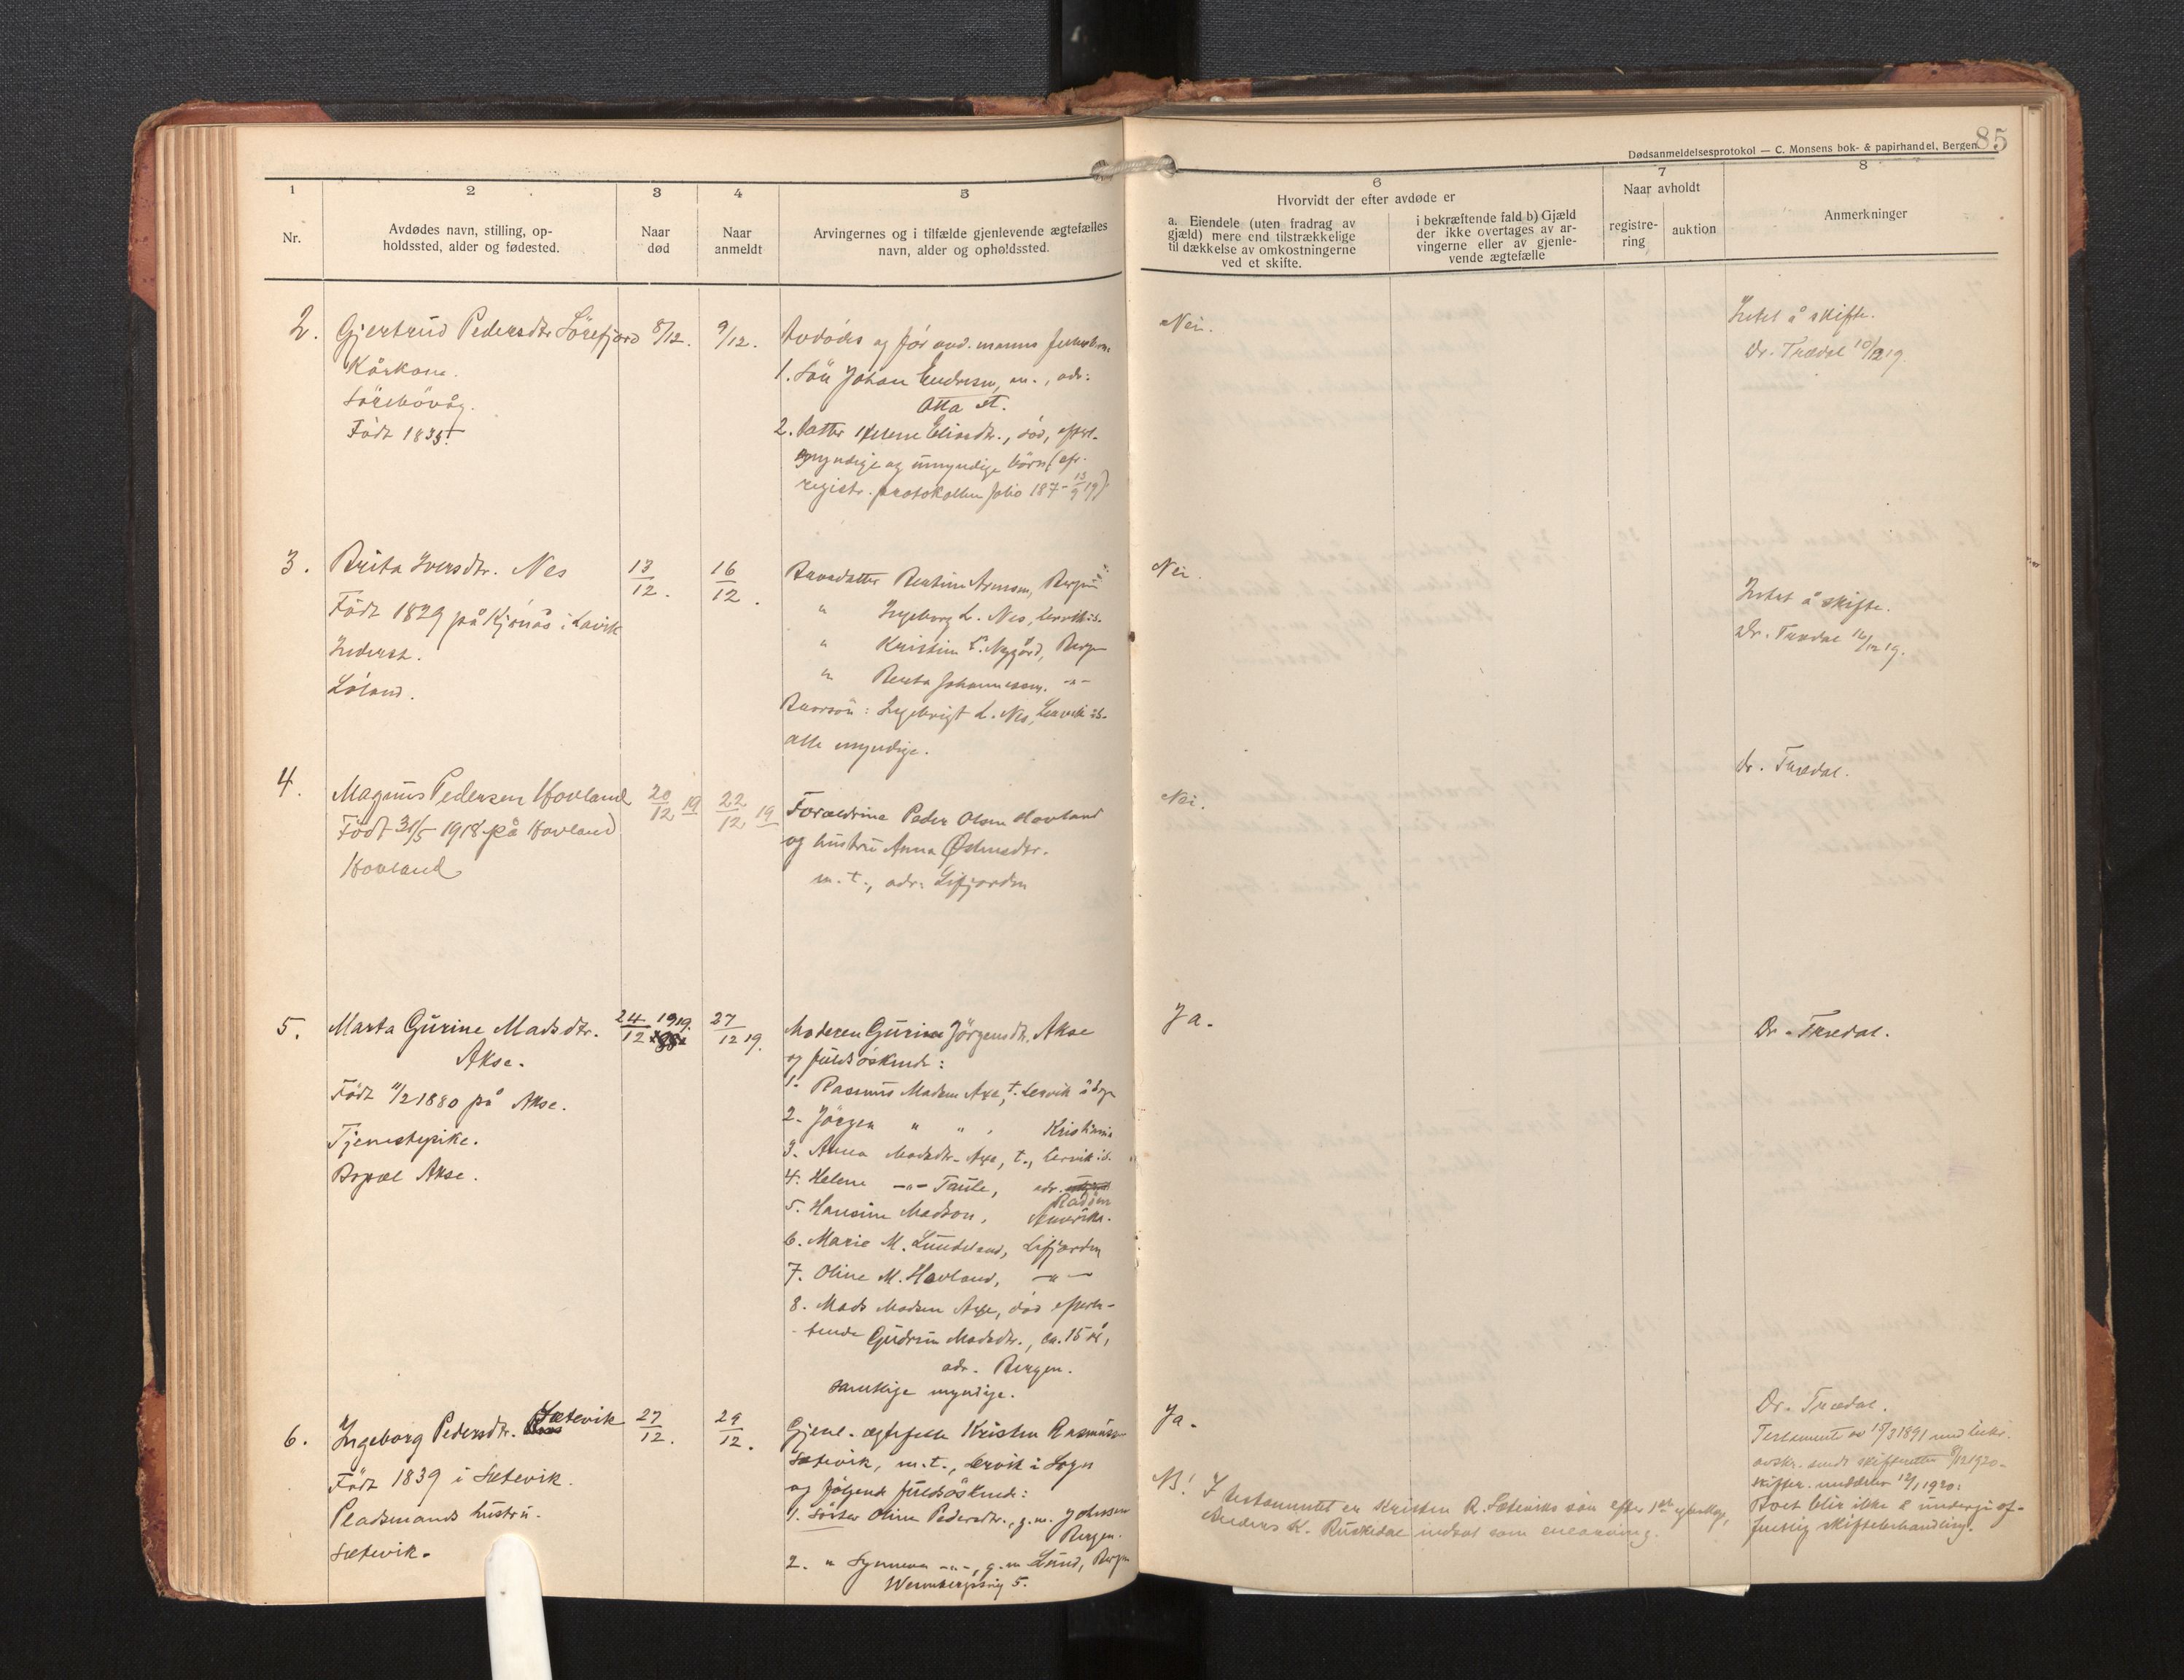 85
Dødsanmeldelsesprotokol — C. Monsens bok- & papirhandel, Bergen.
1
2
3
4
5
6
7
8
Nr.
Avdødes navn, stilling, op-
holdssted, alder og fødested.
Naar
død
Naar
anmeldt
Arvingernes og i tilfælde gjenlevende ægtefælles
navn, alder og opholdssted.
Hvorvidt der efter avdøde er
a. Eiendele (uten fradrag av
gjæld) mere end tilstrækkelige
til dækkelse av omkostningerne
ved et skifte.
i bekræftende fald b) Gjæld
der ikke overtages av ar-
vingerne eller av gjenle-
vende ægtefælle
Naar avholdt
registre-
ring
auktion
Anmerkninger
2.
Gjertrud Pedersdtr Sörefjord
Kårkone.
Sörebövåg.
Född 1835.
8/12.
9/12.
Avdödes og för avd. manns
1. Sön Johan Endresen, m., adr:
Otta st.
2. Datter Helene Elisedtr., död, efterl.
myndige og umyndige börn (cfr.
registr. protokollen folio 187 - 13/9 19)
Nei.
Intet å skifte.
Dr. Trædal 10/12 19.
3.
Brita Iversdtr. Nes
Född 1829 på Kjønås i Lavik
Inderst.
Löland.
13/12.
16/12.
Barnedatter Bertine Arnesen, Bergen
" Ingeborg L. Nes, Lervik i S.
" Kristine L. Nygård, Bergen
" Berta Johannessen, -"-
Barnesön: Ingebrigt L. Nes, Leirvik i S.
alle myndige.
Nei.
Intet å skifte.
Dr. Trædal 16/12 19.
4.
Magnus Pedersen Hovland
Född 31/5 1918 på Hovland
Hovland
20/12 19
22/12 19
Forældrene Peder Olsen Hovland
og hustru Anna Østensdtr.
m. t., adr: Lifjorden
Nei.
Dr. Trædal.
5.
Marta Gurine Madsdtr.
Akse.
Född 11/2 1880 på Akse.
Tjenestepike.
Bopæl Akse.
24/12 1919.
27/12 19.
Moderen Gurine Jörgensdtr. Akse
og fuldsöskende:
1. Rasmus Madsen Axe, t. Lervik i Sogn
2. Jörgen " " , Kristiania
3. Anna Madsdtr. Axe, t., Lervik i S.
4. Helene -"- Taule, adr. Radöen
5. Hansine Madson, Amerika.
6. Marie M. Lundeland, Lifjorden
7. Oline M. Hovland, -"-
8. Mads Madsen Axe, död efterla-
tende Gudrun Madsdtr., ca. 15 år,
adr. Bergen.
samtlige myndige.
Ja.
Dr. Trædal.
6.
Ingeborg Pedersdtr. Sætevik
Född 1839 i Sætevik.
Pladsmands hustru.
Sætevik.
27/12.
29/12.
Gjenl. ægtefelle Kristen Rasmussen
Sætevik, m.t., Lervik i Sogn
og følgende fuldsöskende:
1. Söster Oline Pedersdtr., g.m. Johnsen
Bergen.
2. " Synneva -"-, g.m. Lund, Bergen
5.
Ja.
NB! I testamentet er Kristen R. Sæteviks sön efter 1ste egteskap,
Anders K. Ruskedal indsat som enearving.
Dr. Trædal.
Testamente av 15/3 1891 med bekr.
avskr. sendt skifteretten 8/1 1920.
skifter. meddeler 12/1 1920:
Boet blir ikke å undergi of-
fentlig skiftebehandling.